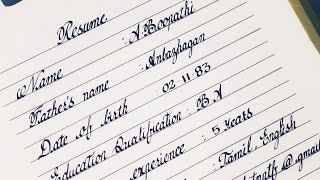 Resume
Name : A. Boopathi
Father's name : Anbazhagan
Date of birth : 02-11-83
Education Qualification : B A
experience : 5 Years
: Tamil, English
@gmai